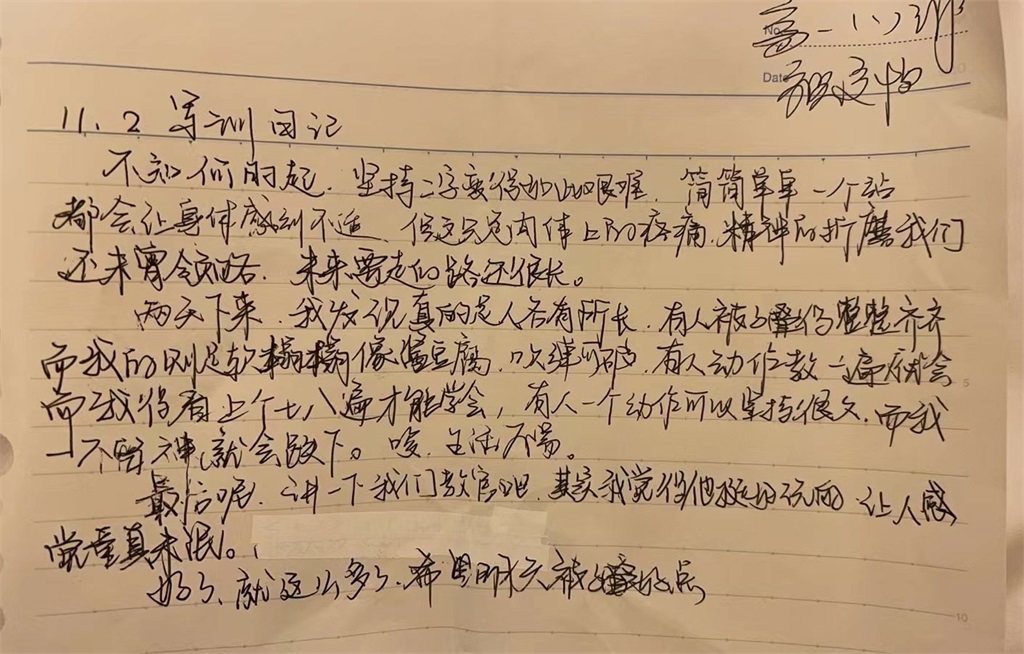 No.
高一(八)班
Date
11.2 军训日记
不知何时起，坚持二字变得如此的艰难，简简单单一个站
都会让身体感到不适，但这只是肉体上的疼痛，精神的折磨我们
还未曾领略，未来要走的路还很长。
两天下来，我发现真的是人各有所长，有人被子叠得整整齐齐
而我的则是软榻榻像滩豆腐，吹弹可破，有人动作教一遍就会
而我得看上个七八遍才能学会，有人一个动作可以坚持很久，而我
一不留神就会放下。唉，生活不易。
最后呢，讲一下我们教官吧，其实我觉得他挺好玩的，让人感
觉童真未泯。
好了，就这么多了，希望明天被子叠好点
5
10